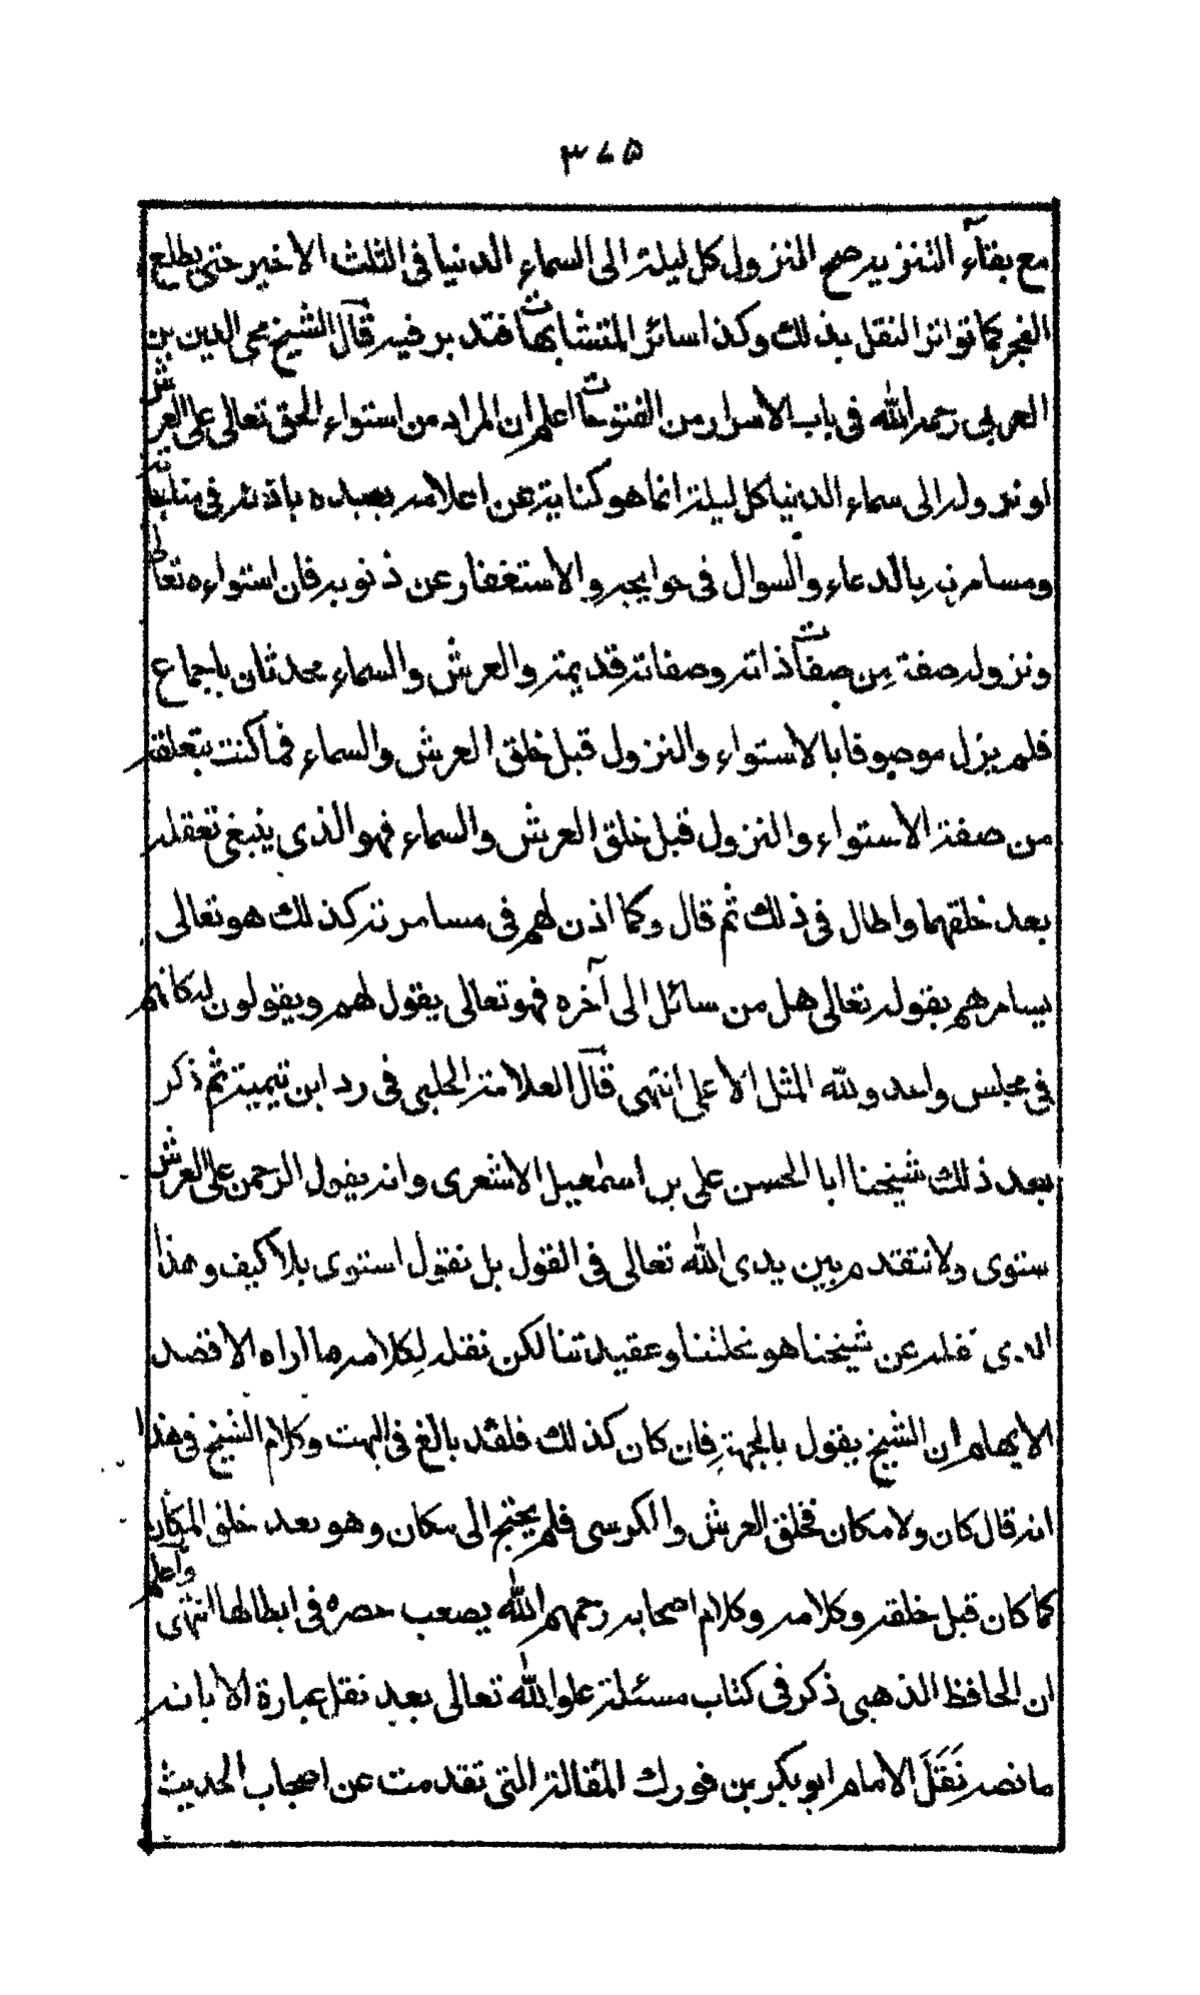 ٣٧٥
مع بقاء التنزيه صح النزول كل ليلة الى السماء الدنيا فى الثلث الاخير حتى يطلع
الفجر كما تواتر النقل بذلك وكذا سائر المتشابهات فتدبر فيه قال الشيخ محى الدين بن
العربى رحمه الله فى باب الاسرار من الفتوحات اعلم ان المراد من استواء الحق تعالى على العرش
او نزوله الى سماء الدنيا كل ليلة انما هو كناية عن اعلامه بعبده باذنه فى مناجاته
ومسامرته بالدعاء والسوال فى حوايجه والاستغفار عن ذنوبه فان استواءه تعالى
ونزوله صفة من صفات ذاته وصفاته قديمة والعرش والسماء محدثان باجماع
فلم يزل موصوفا بالاستواء والنزول قبل خلق العرش والسماء فما كنت تتعلقه
من صفة الاستواء والنزول قبل خلق العرش والسماء فهو الذى ينبغى تعقله
بعد خلقهما واطال فى ذلك ثم قال وكما اذن لهم فى مسامرته كذلك هو تعالى
يسامرهم بقوله تعالى هل من سائل الى آخره فهو تعالى يقول لهم ويقولون له كانهم
فى مجلس واحد ولله المثل الاعلى انتهى قال العلامة الحلبى فى رد ابن تيمية ثم ذكر
بعد ذلك شيخنا ابا الحسن على بن اسمعيل الاشعرى وانه يقول الرحمن على العرش
ستوى ولا نتقدم بين يدى الله تعالى فى القول بل نقول استوى بلا كيف وهذا
الذى نقله عن شيخنا هو نحلتنا وعقيدتنا لكن نقله لكلامه ما اراه الا قصد
الايهام ان الشيخ يقول بالجهة فان كان كذلك فلقد بالغ فى البهت وكلام الشيخ فى هذا
انه قال كان ولا مكان فخلق العرش والكرسى فلم يحتج الى مكان وهو بعد خلق المكان
كما كان قبل خلقه وكلامه وكلام اصحابه رحمهم الله يصعب حصره فى ابطالها انتهى واعلم
ان الحافظ الذهبى ذكر فى كتاب مسئلة علو الله تعالى بعد نقل عبارة الابانه
ما نصه نَقَلَ الامام ابو بكر بن فورك المقالة التى تقدمت عن اصحاب الحديث